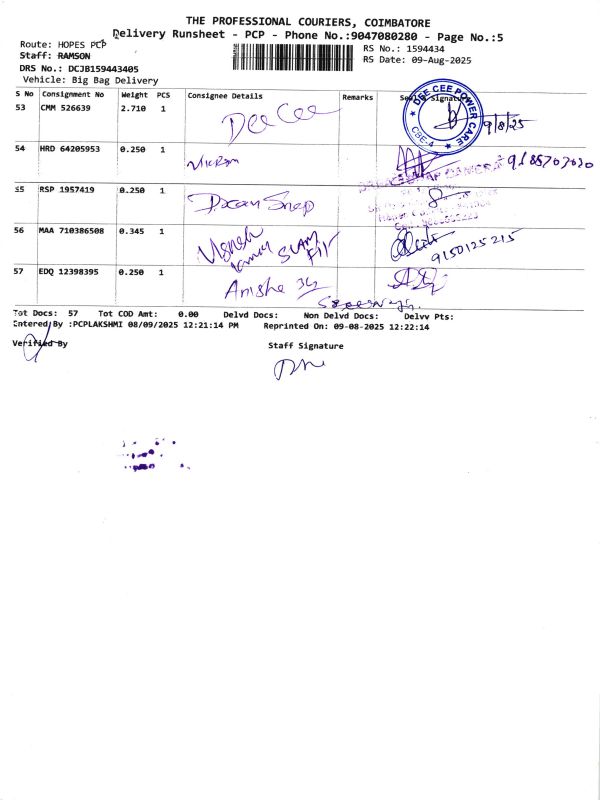 THE PROFESSIONAL COURIERS, COIMBATORE
Delivery Runsheet - PCP - Phone No.:9047080280 - Page No.:5
Route: HOPES PCP
RS No.: 1594434
Staff: RAMSON
RS Date: 09-Aug-2025
DRS No.: DCJB159443405
Vehicle: Big Bag Delivery
S No Consignment No Weight PCS Consignee Details Remarks Seal & Signature
53 CMM 526639 2.710 1 Dee Cee
DEE CEE POWER CARE
CBE-4
9/8/25
54 HRD 64205953 0.250 1 Vikram
55 RSP 1957419 0.250 1
56 MAA 710386508 0.345 1
9150125215
57 EDQ 12398395 0.250 1
Tot Docs: 57 Tot COD Amt: 0.00 Delvd Docs: Non Delvd Docs: Delvv Pts:
Entered By :PCPLAKSHMI 08/09/2025 12:21:14 PM Reprinted On: 09-08-2025 12:22:14
Verified By Staff Signature